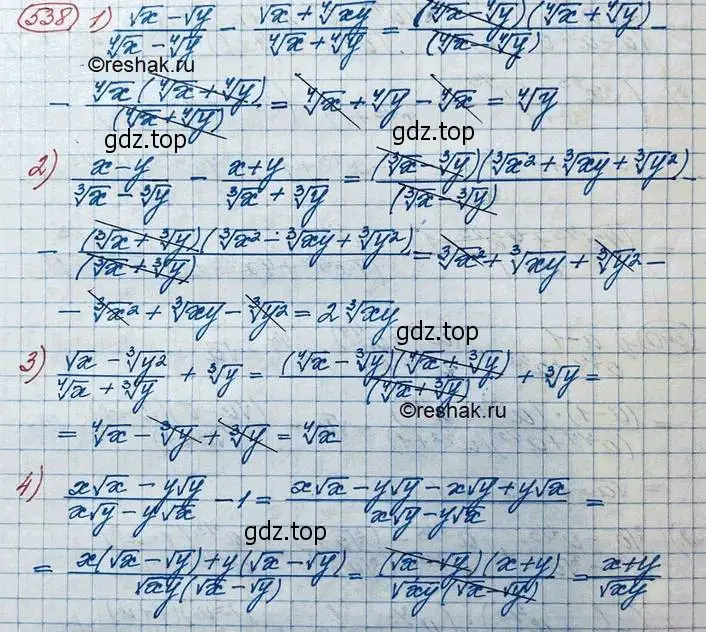 538 1) (√x − √y)/(⁴√x − ⁴√y) − (√x + ⁴√xy)/(⁴√x + ⁴√y) = ((⁴√x − ⁴√y)(⁴√x + ⁴√y))/(⁴√x − ⁴√y) −
©reshak.ru
− (⁴√x(⁴√x + ⁴√y))/(⁴√x + ⁴√y) = ⁴√x + ⁴√y − ⁴√x = ⁴√y
gdz.top
2) (x − y)/(³√x − ³√y) − (x + y)/(³√x + ³√y) = ((³√x − ³√y)(³√x² + ³√xy + ³√y²))/(³√x − ³√y) −
− ((³√x + ³√y)(³√x² − ³√xy + ³√y²))/(³√x + ³√y) = ³√x² + ³√xy + ³√y² −
− ³√x² + ³√xy − ³√y² = 2 ³√xy
gdz.top
3) (√x − ³√y²)/(⁴√x + ³√y) + ³√y = ((⁴√x − ³√y)(⁴√x + ³√y))/(⁴√x + ³√y) + ³√y =
©reshak.ru
= ⁴√x − ³√y + ³√y = ⁴√x
4) (x√x − y√y)/(x√y − y√x) − 1 = (x√x − y√y − x√y + y√x)/(x√y − y√x) =
gdz.top
= (x(√x − √y) + y(√x − √y))/(√xy(√x − √y)) = ((√x − √y)(x + y))/(√xy(√x − √y)) = (x + y)/√xy
gdz.top